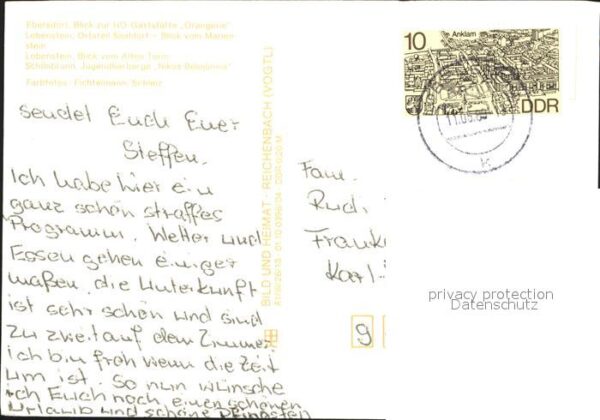 Ebersdorf, Blick zur HO-Gaststätte „Orangerie"
Lobenstein, Ortsteil - Blick vom
stein
Lobenstein, Blick vom Alten Turm
Schönbrunn, Jugendherberge „Nikos Belojannis"
Farbfotos: Fichtelmann, Schleiz
sendet Euch Euer
Steffen.
Ich habe hier ein
ganz schön straffes
Programm. Wetter und
Essen gehen einiger
maßen, die Unterkunft
ist sehr schön und sind
zu zweit auf dem Zimmer.
ich bin froh wenn die Zeit
um ist. So nun wünsche
ich Euch noch einen schönen
Urlaub und schöne
BILD UND HEIMAT · REICHENBACH (VOGTL)
10
Anklam
DDR
Fam.
Rudi
Franke
Karl-
9
privacy protection
Datenschutz